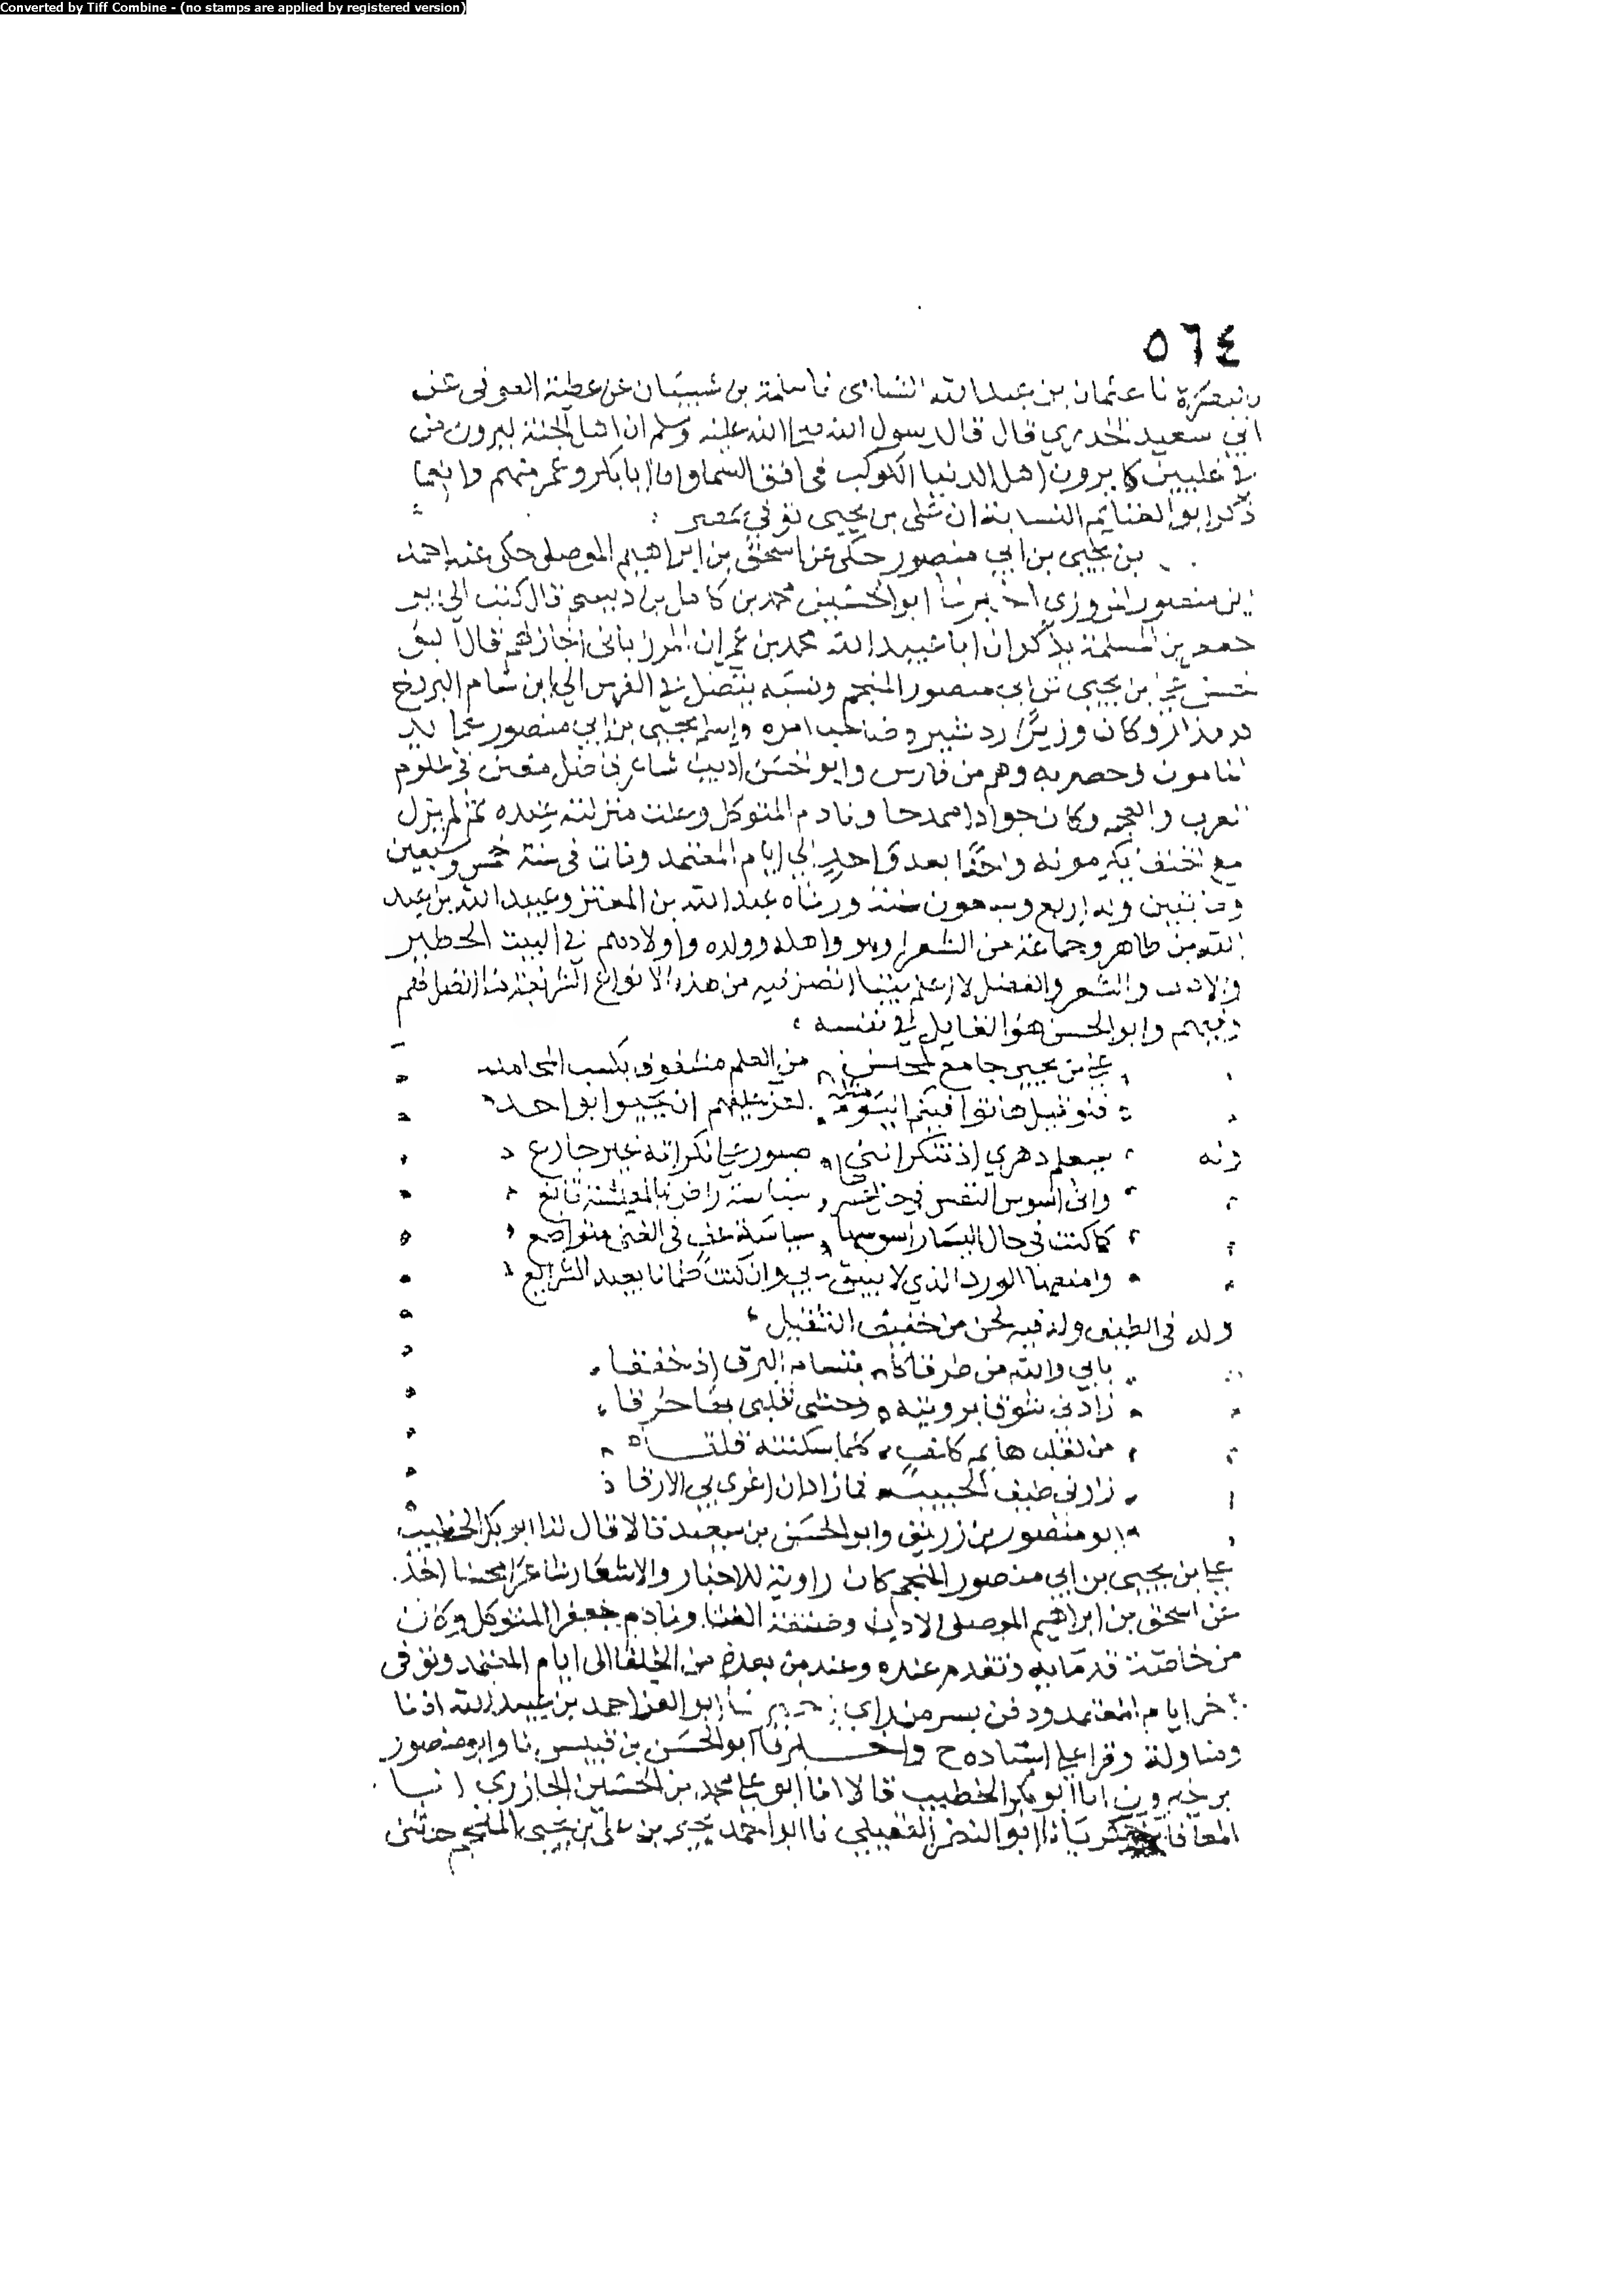 Converted by Tiff Combine - (no stamps are applied by registered version)
٥٦٤
نا عثمان بن عبد الله نا سلمة بن شبيب عن عطية العوفي عن
ابي سعيد الخدري قال قال رسول الله صلى الله عليه وسلم ان اهل الجنة ليرون من
في عليين كما يرون اهل الدنيا الكوكب في افق السما وان ابا بكر وعمر منهم وانعما
ذكر ابو الغنايم النسابة ان علي بن يحيى توفي بمصر
بن يحيى بن ابي منصور حكى عن اسحق بن ابراهيم الموصلي حكى عنه احمد
بن منصور المروزي اخبرنا ابو الحسين محمد بن كامل بن ديسم قال كتب الي ابو
جعفر بن المسلمة يذكر ان ابا عبيد الله محمد بن عمران المرزباني اجاز لهم قال ابو
الحسن علي بن يحيى بن ابي منصور المنجم ونسبه يتصل في الفرس الي ابن سام البروخ
وكان وزير اردشير وصاحب امره واسلم يحيى بن ابي منصور على يد
المامون وخص به وهم من فارس وابو الحسن اديب شاعر فاضل مفنن في علوم
العرب والعجم وكان جوادا ممدحا ونادم المتوكل وعلت منزلته عنده ثم لم يزل
مع الخلفا يكرمونه واحدا بعد واحد الي ايام المعتمد ومات في سنة خمس وسبعين
ومائتين وله اربع وسبعون سنة ورثاه عبد الله بن المعتز وعبيد الله بن عبد
الله بن طاهر وجماعة من الشعرا وهو واهله وولده واولادهم في البيت الخطير
والادب والشعر والفضل لا اعلم بيتا اتصل فيه من هذه الانواع
فيهم وابو الحسن هو القايل في نفسه
علي بن يحيى جامع لمحاسن من العلم مشغوف بكسب المحامد
فلو قيل هاتوا فيكم اليوم مثله لعز عليهم ان يجيوا بواحد
وله سيعلم دهري اذ تنكر انني صبور على نكرائه غير جازع
واني اسوس النفس في حال عسرها سياسة راض بالمعيشة قانع
كما كنت في حال اليسار اسوسها سياسة عف في الغنى متواضع
وامنعها الورد الذي لا يليق بي وان كنت ظمانا بعيد الشرايع
وله في الطيف وله فيه لحن من خفيف الثقيل
بابي والله من طرقا كابتسام البرق اذ خفقا
زادني شوقا برويته وحشى قلبي به حرقا
من لقلب هايم كلف كلما سكنته قلقا
زارني طيف الحبيب فما زاد ان اغرى بي الارقا
ابو منصور بن زريق وابو الحسن بن سعيد قالا قال لنا ابو بكر الخطيب
علي بن يحيى بن ابي منصور المنجم كان راوية للاخبار والاشعار شاعرا محسنا اخذ
عن اسحق بن ابراهيم الموصلي الادب وصنعة الغنا ونادم جعفر المتوكل وكان
من خاصة ندمايه وتقدم عنده وعند من بعده من الخلفا الى ايام المعتمد وتوفي
اخر ايام المعتمد ودفن بسر من راي اخبرنا ابو العز احمد بن عبيد الله اذنا
ومناولة وقرا علي اسناده ح واخبرنا ابو الحسن بن قبيس نا وابو منصور
بن خيرون انا ابو بكر الخطيب قالا انا ابو علي محمد بن الحسين الجازري انبا
المعافا بن زكريا نا ابو النضر العقيلي نا ابو احمد يحيى بن علي بن يحيى المنجم حدثني